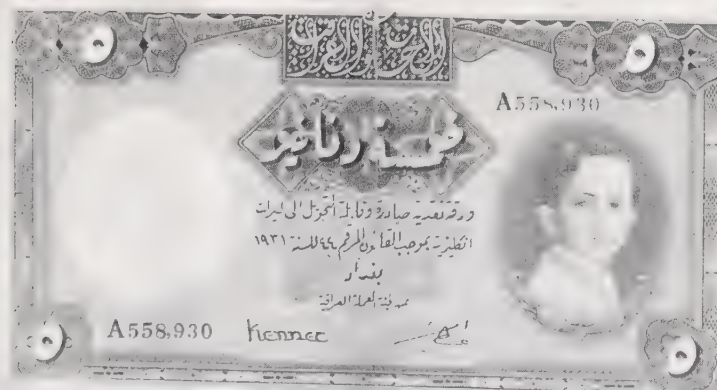 ٥ ٥
A558,930
خمسة دنانير
ورقة نقدية صادرة وقابلة التحويل الى ليرات
انكليزية بموجب القانون المرقم ٤٤ للسنة ١٩٣١
بغداد
عن لجنة العملة العراقية
A558,930 Kennet
٥ ٥